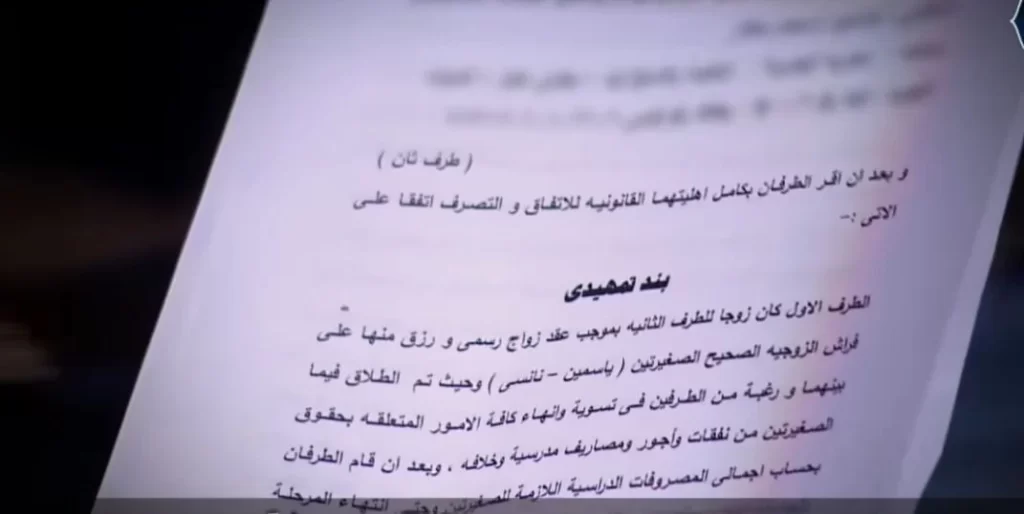 ( طرف ثان )
و بعد ان اقر الطرفان بكامل اهليتهما القانونيه للاتفاق و التصرف اتفقا على
الاتى :-
بند تمهيدى
الطرف الاول كان زوجا للطرف الثانيه بموجب عقد زواج رسمى و رزق منها على
فراش الزوجيه الصحيح الصغيرتين ( ياسمين - نانسى ) وحيث تم الطلاق فيما
بينهما و رغبة من الطرفين فى تسوية وانهاء كافة الامور المتعلقه بحقوق
الصغيرتين من نفقات وأجور ومصاريف مدرسية وخلافه ، وبعد ان قام الطرفان
بحساب اجمالى المصروفات الدراسية اللازمة للصغيرتين وحتى انتهاء المرحلة